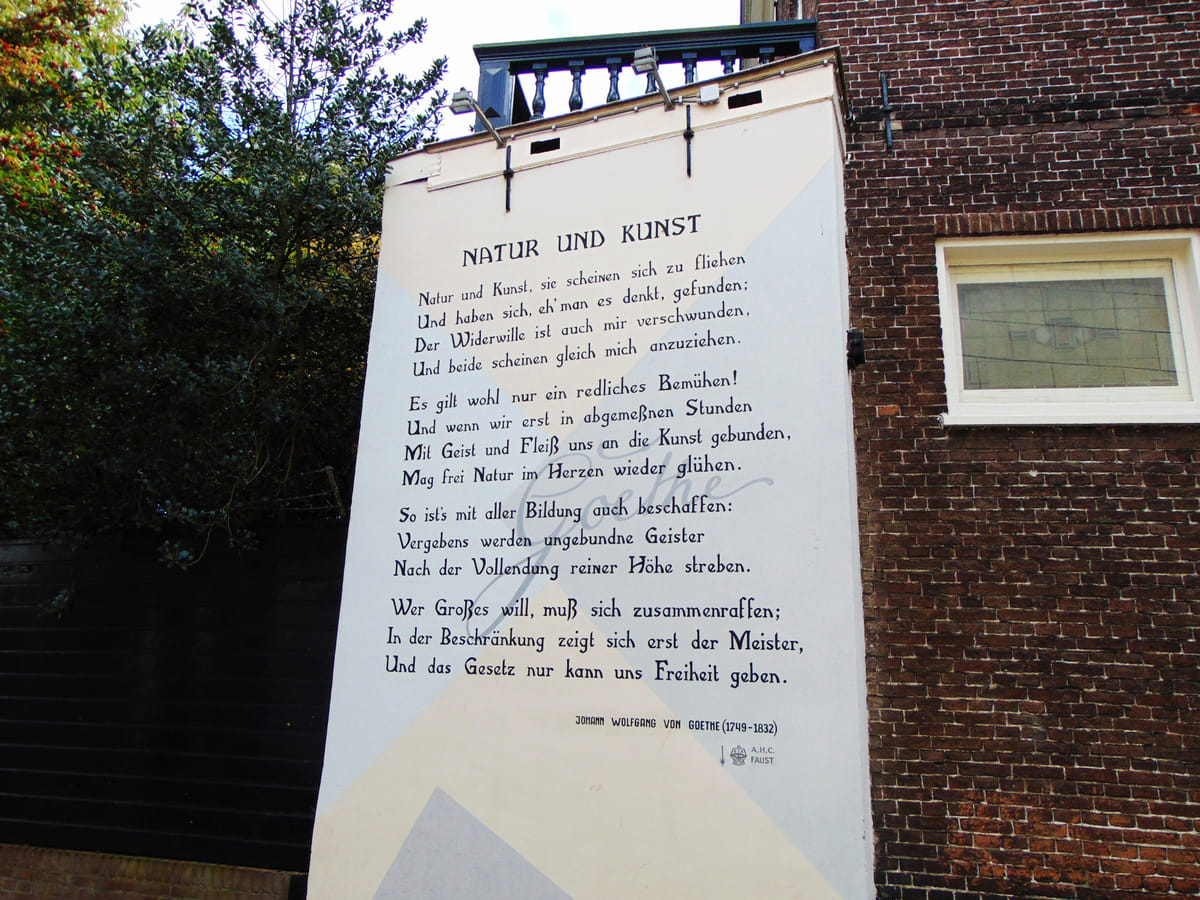 NATUR UND KUNST
Natur und Kunst, sie scheinen sich zu fliehen
Und haben sich, eh' man es denkt, gefunden;
Der Widerwille ist auch mir verschwunden,
Und beide scheinen gleich mich anzuziehen.
Es gilt wohl nur ein redliches Bemühen!
Und wenn wir erst in abgemeßnen Stunden
Mit Geist und Fleiß uns an die Kunst gebunden,
Mag frei Natur im Herzen wieder glühen.
So ist's mit aller Bildung auch beschaffen:
Vergebens werden ungebundne Geister
Nach der Vollendung reiner Höhe streben.
Goethe
Wer Großes will, muß sich zusammenraffen;
In der Beschränkung zeigt sich erst der Meister,
Und das Gesetz nur kann uns Freiheit geben.
JOHANN WOLFGANG VON GOETHE (1749-1832)
A.H.C.
FAUST